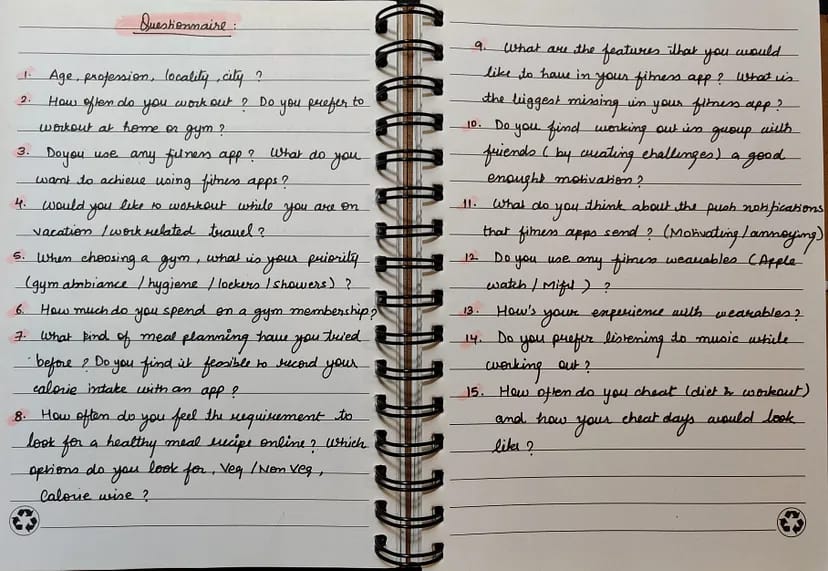 Questionnaire :
1. Age, profession, locality, city ?
2. How often do you work out ? Do you prefer to
workout at home or gym ?
3. Do you use any fitness app ? What do you
want to achieve using fitness apps ?
4. Would you like to workout while you are on
vacation / work related travel ?
5. When choosing a gym, what is your priority
(gym ambiance / hygiene / lockers / showers) ?
6. How much do you spend on a gym membership?
7. What kind of meal planning have you tried
before ? Do you find it feasible to record your
calorie intake with an app ?
8. How often do you feel the requirement to
look for a healthy meal recipe online ? Which
options do you look for, Veg / Non Veg,
Calorie wise ?
9. What are the features that you would
like to have in your fitness app ? What is
the biggest missing in your fitness app ?
10. Do you find working out in group with
friends ( by creating challenges) a good
enought motivation ?
11. What do you think about the push notifications
that fitness apps send ? (Motivating / annoying)
12. Do you use any fitness wearables (Apple
watch / Mifit ) ?
13. How's your experience with wearables ?
14. Do you prefer listening to music while
working out ?
15. How often do you cheat (diet & workout)
and how your cheat days would look
like ?